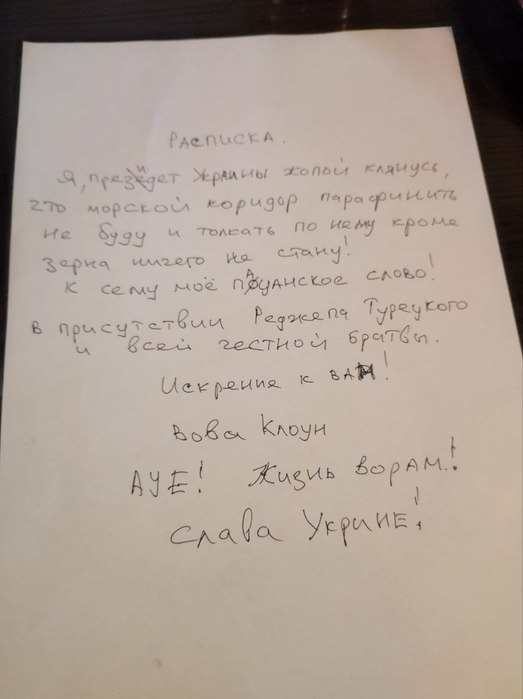 РАСПИСКА.
Я, презедет Украины жопой клянусь,
что морской коридор парафинить
не буду и толкать по нему кроме
зерна ничего не стану!
К сему моё пАцанское слово!
В присутствии Реджепа Турецкого
и всей честной братвы.
Искренне к ВАМ!
Вова Клоун
АУЕ! Жизнь ворам!
Слава Укрине!